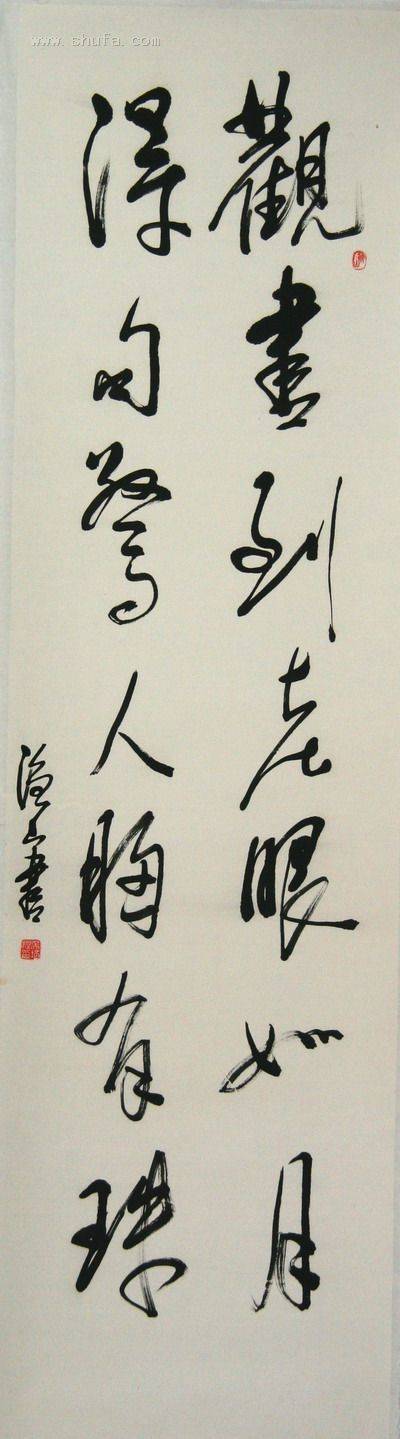 www.shufa.com
觀書到老眼如月
得句驚人胸有珠
書